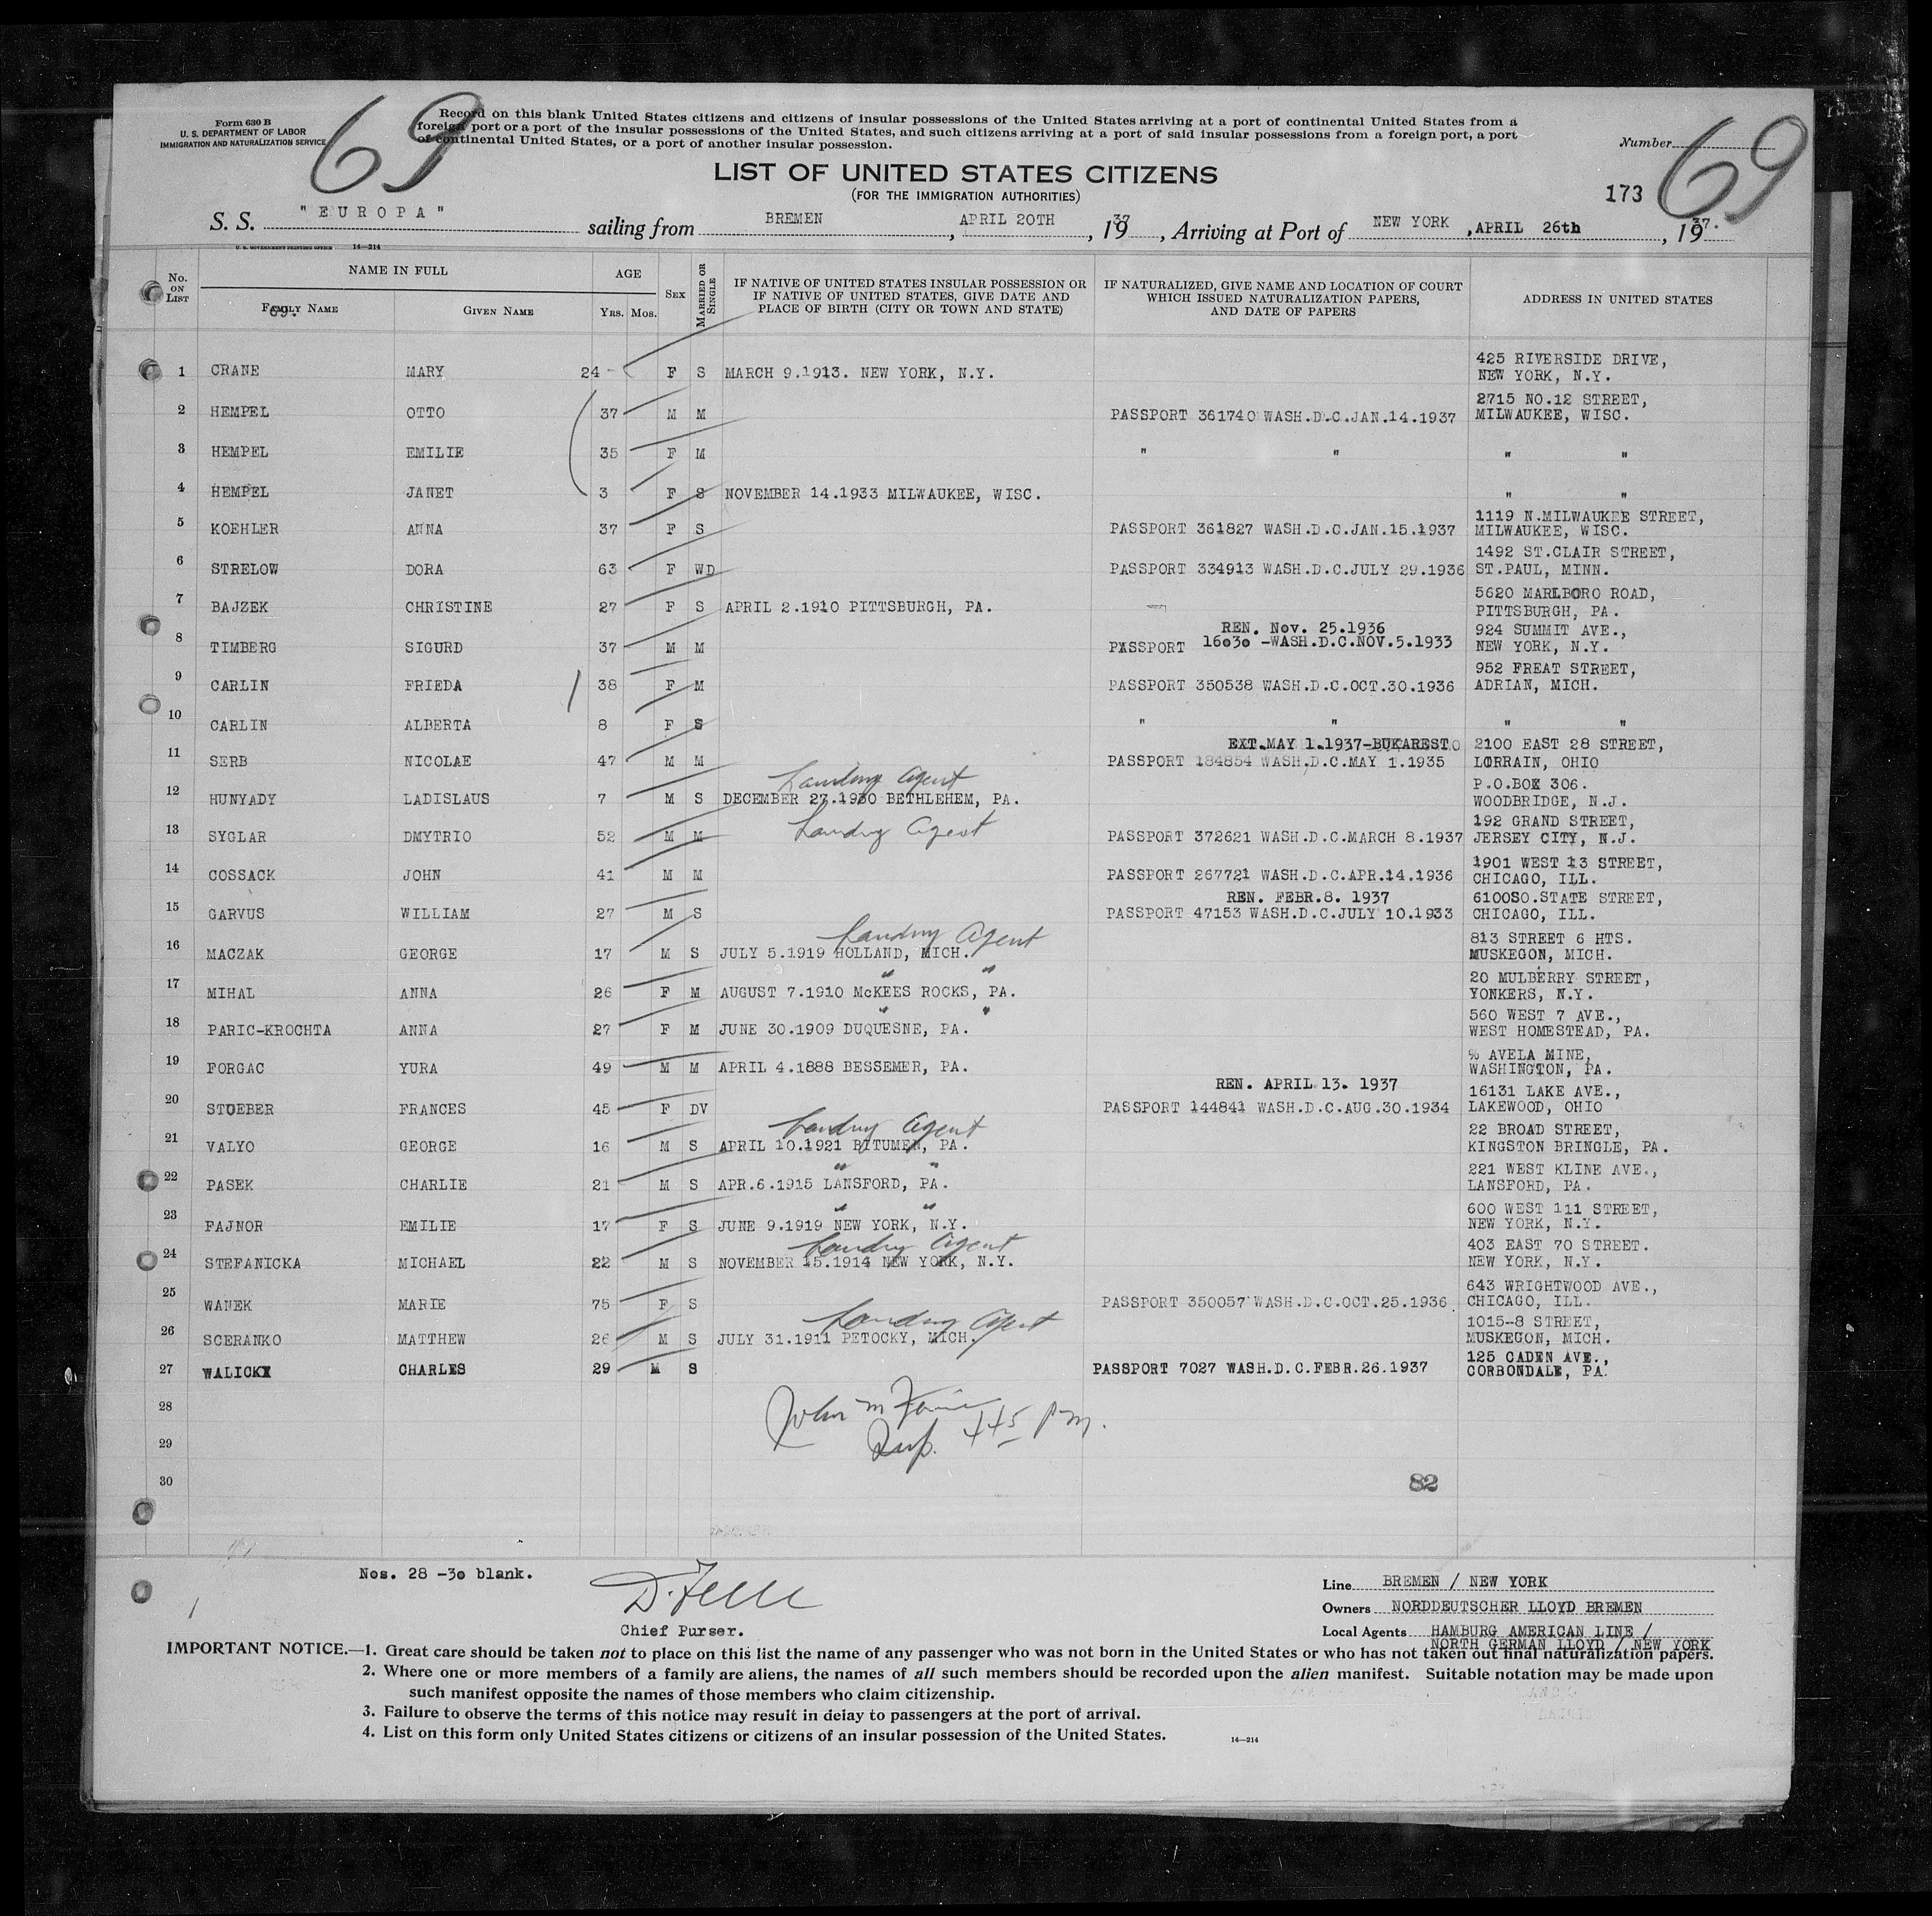 Form 630 B
U. S. DEPARTMENT OF LABOR
IMMIGRATION AND NATURALIZATION SERVICE
69
Record on this blank United States citizens and citizens of insular possessions of the United States arriving at a port of continental United States from a
foreign port or a port of the insular possessions of the United States, and such citizens arriving at a port of said insular possessions from a foreign port, a port
of continental United States, or a port of another insular possession.
Number
69
LIST OF UNITED STATES CITIZENS
(FOR THE IMMIGRATION AUTHORITIES)
173
S. S. "EUROPA" sailing from BREMEN, APRIL 20TH, 1937, Arriving at Port of NEW YORK, APRIL 26th, 1937.
U. S. GOVERNMENT PRINTING OFFICE 14—214
No. ON LIST
NAME IN FULL
FAMILY NAME
GIVEN NAME
AGE
YRS. MOS.
SEX
MARRIED OR SINGLE
IF NATIVE OF UNITED STATES INSULAR POSSESSION OR
IF NATIVE OF UNITED STATES, GIVE DATE AND
PLACE OF BIRTH (CITY OR TOWN AND STATE)
IF NATURALIZED, GIVE NAME AND LOCATION OF COURT
WHICH ISSUED NATURALIZATION PAPERS,
AND DATE OF PAPERS
ADDRESS IN UNITED STATES
69.
425 RIVERSIDE DRIVE,
1 CRANE MARY 24 - F S MARCH 9.1913. NEW YORK, N.Y. NEW YORK, N.Y.
2715 NO.12 STREET,
2 HEMPEL OTTO 37 M M PASSPORT 361740 WASH.D.C.JAN.14.1937 MILWAUKEE, WISC.
3 HEMPEL EMILIE 35 F M " " " "
4 HEMPEL JANET 3 F S NOVEMBER 14.1933 MILWAUKEE, WISC. " "
1119 N.MILWAUKEE STREET,
5 KOEHLER ANNA 37 F S PASSPORT 361827 WASH.D.C.JAN.15.1937 MILWAUKEE, WISC.
1492 ST.CLAIR STREET,
6 STRELOW DORA 63 F WD PASSPORT 334913 WASH.D.C.JULY 29.1936 ST.PAUL, MINN.
5620 MARLBORO ROAD,
7 BAJZEK CHRISTINE 27 F S APRIL 2.1910 PITTSBURGH, PA. PITTSBURGH, PA.
REN. Nov. 25.1936 924 SUMMIT AVE.,
8 TIMBERG SIGURD 37 M M PASSPORT 16030 -WASH.D.C.NOV.5.1933 NEW YORK, N.Y.
952 FREAT STREET,
9 CARLIN FRIEDA 38 F M PASSPORT 350538 WASH.D.C.OCT.30.1936 ADRIAN, MICH.
10 CARLIN ALBERTA 8 F S " " " "
EXT.MAY 1.1937-BUKAREST 2100 EAST 28 STREET,
11 SERB NICOLAE 47 M M PASSPORT 184854 WASH.D.C.MAY 1.1935 LORRAIN, OHIO
Landing Agent P.O.BOX 306.
12 HUNYADY LADISLAUS 7 M S DECEMBER 27.1930 BETHLEHEM, PA. WOODBRIDGE, N.J.
Landing Agent 192 GRAND STREET,
13 SYGLAR DMYTRIO 52 M M PASSPORT 372621 WASH.D.C.MARCH 8.1937 JERSEY CITY, N.J.
1901 WEST 13 STREET,
14 COSSACK JOHN 41 M M PASSPORT 267721 WASH.D.C.APR.14.1936 CHICAGO, ILL.
REN. FEBR.8. 1937 6100SO.STATE STREET,
15 GARVUS WILLIAM 27 M S PASSPORT 47153 WASH.D.C.JULY 10.1933 CHICAGO, ILL.
Landing Agent 813 STREET 6 HTS.
16 MACZAK GEORGE 17 M S JULY 5.1919 HOLLAND, MICH. MUSKEGON, MICH.
" " 20 MULBERRY STREET,
17 MIHAL ANNA 26 F M AUGUST 7.1910 McKEES ROCKS, PA. YONKERS, N.Y.
" " 560 WEST 7 AVE.,
18 PARIC-KROCHTA ANNA 27 F M JUNE 30.1909 DUQUESNE, PA. WEST HOMESTEAD, PA.
% AVELA MINE,
19 FORGAC YURA 49 M M APRIL 4.1888 BESSEMER, PA. WASHINGTON, PA.
REN. APRIL 13. 1937 16131 LAKE AVE.,
20 STUEBER FRANCES 45 F DV PASSPORT 144841 WASH.D.C.AUG.30.1934 LAKEWOOD, OHIO
Landing Agent 22 BROAD STREET,
21 VALYO GEORGE 16 M S APRIL 10.1921 BITUMEN, PA. KINGSTON BRINGLE, PA.
" " 221 WEST KLINE AVE.,
22 PASEK CHARLIE 21 M S APR.6.1915 LANSFORD, PA. LANSFORD, PA.
" " 600 WEST 111 STREET,
23 FAJNOR EMILIE 17 F S JUNE 9.1919 NEW YORK, N.Y. NEW YORK, N.Y.
Landing Agent 403 EAST 70 STREET.
24 STEFANICKA MICHAEL 22 M S NOVEMBER 15.1914 NEW YORK, N.Y. NEW YORK, N.Y.
643 WRIGHTWOOD AVE.,
25 WANEK MARIE 75 F S PASSPORT 350057 WASH.D.C.OCT.25.1936 CHICAGO, ILL.
Landing Agent 1015-8 STREET,
26 SCERANKO MATTHEW 26 M S JULY 31.1911 PETOCKY, MICH. MUSKEGON, MICH.
125 CADEN AVE.,
27 WALICKY CHARLES 29 M S PASSPORT 7027 WASH.D.C.FEBR.26.1937 CORBONDALE, PA.
28
John M
29
Insp. 445 P.M.
30
82
Nos. 28 -30 blank.
Chief Purser.
Line BREMEN / NEW YORK
Owners NORDDEUTSCHER LLOYD BREMEN
Local Agents HAMBURG AMERICAN LINE /
NORTH GERMAN LLOYD / NEW YORK
IMPORTANT NOTICE.—1. Great care should be taken not to place on this list the name of any passenger who was not born in the United States or who has not taken out final naturalization papers.
2. Where one or more members of a family are aliens, the names of all such members should be recorded upon the alien manifest. Suitable notation may be made upon
such manifest opposite the names of those members who claim citizenship.
3. Failure to observe the terms of this notice may result in delay to passengers at the port of arrival.
4. List on this form only United States citizens or citizens of an insular possession of the United States.
14—214